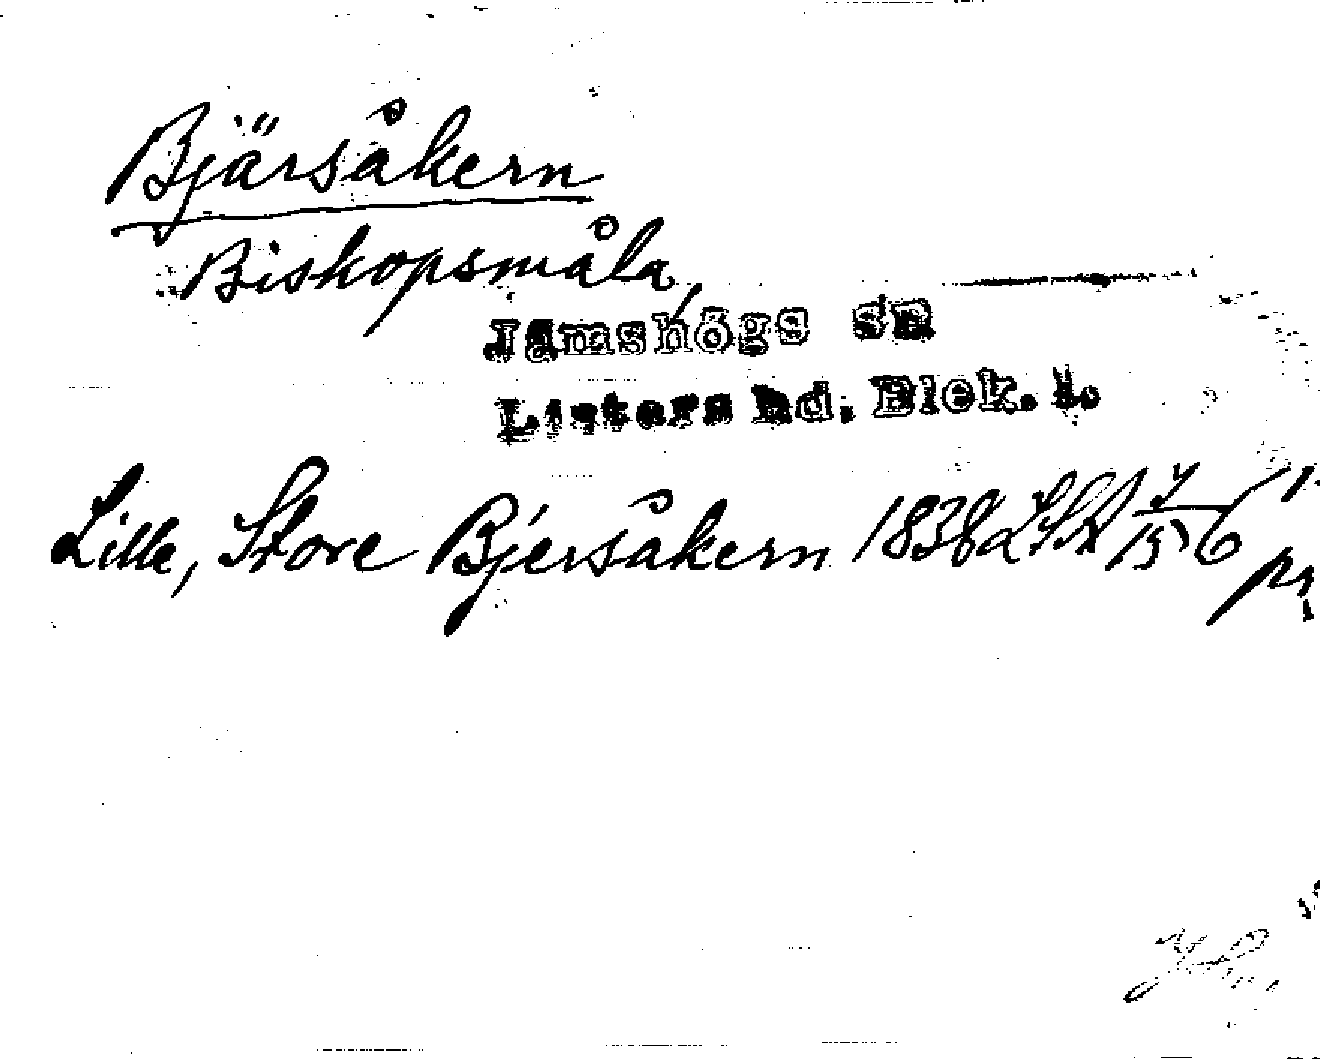 Bjärsåkern
Biskopsmåla,
Jämshögs sn
Listers hd. Blek. l.
Lille, Store Bjersåkern 1838 LSA